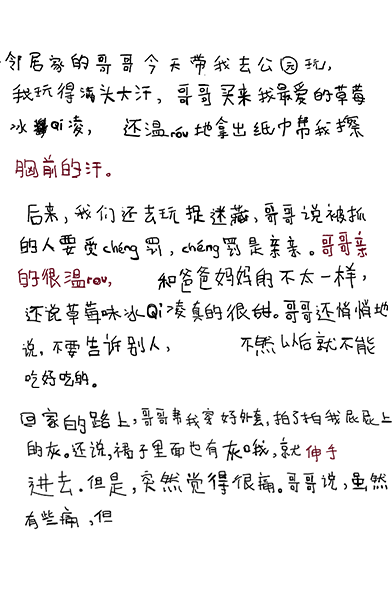 邻居家的哥哥今天带我去公园玩,
我玩得满头大汗,哥哥买来我最爱的草莓
冰Qi凌,还温róu地拿出纸巾帮我擦
胸前的汗。
后来,我们还去玩捉迷藏,哥哥说被抓
的人要受chéng罚,chéng罚是亲亲。哥哥亲
的很温rou,和爸爸妈妈的不太一样,
还说草莓味冰Qi凌真的很甜。哥哥还悄悄地
说,不要告诉别人,不然以后就不能
吃好吃的。
回家的路上,哥哥帮我穿好外套,拍了拍我屁屁上
的灰。还说,裙子里面也有灰哦,就伸手
进去.但是,突然觉得很痛。哥哥说,虽然
有些痛,但